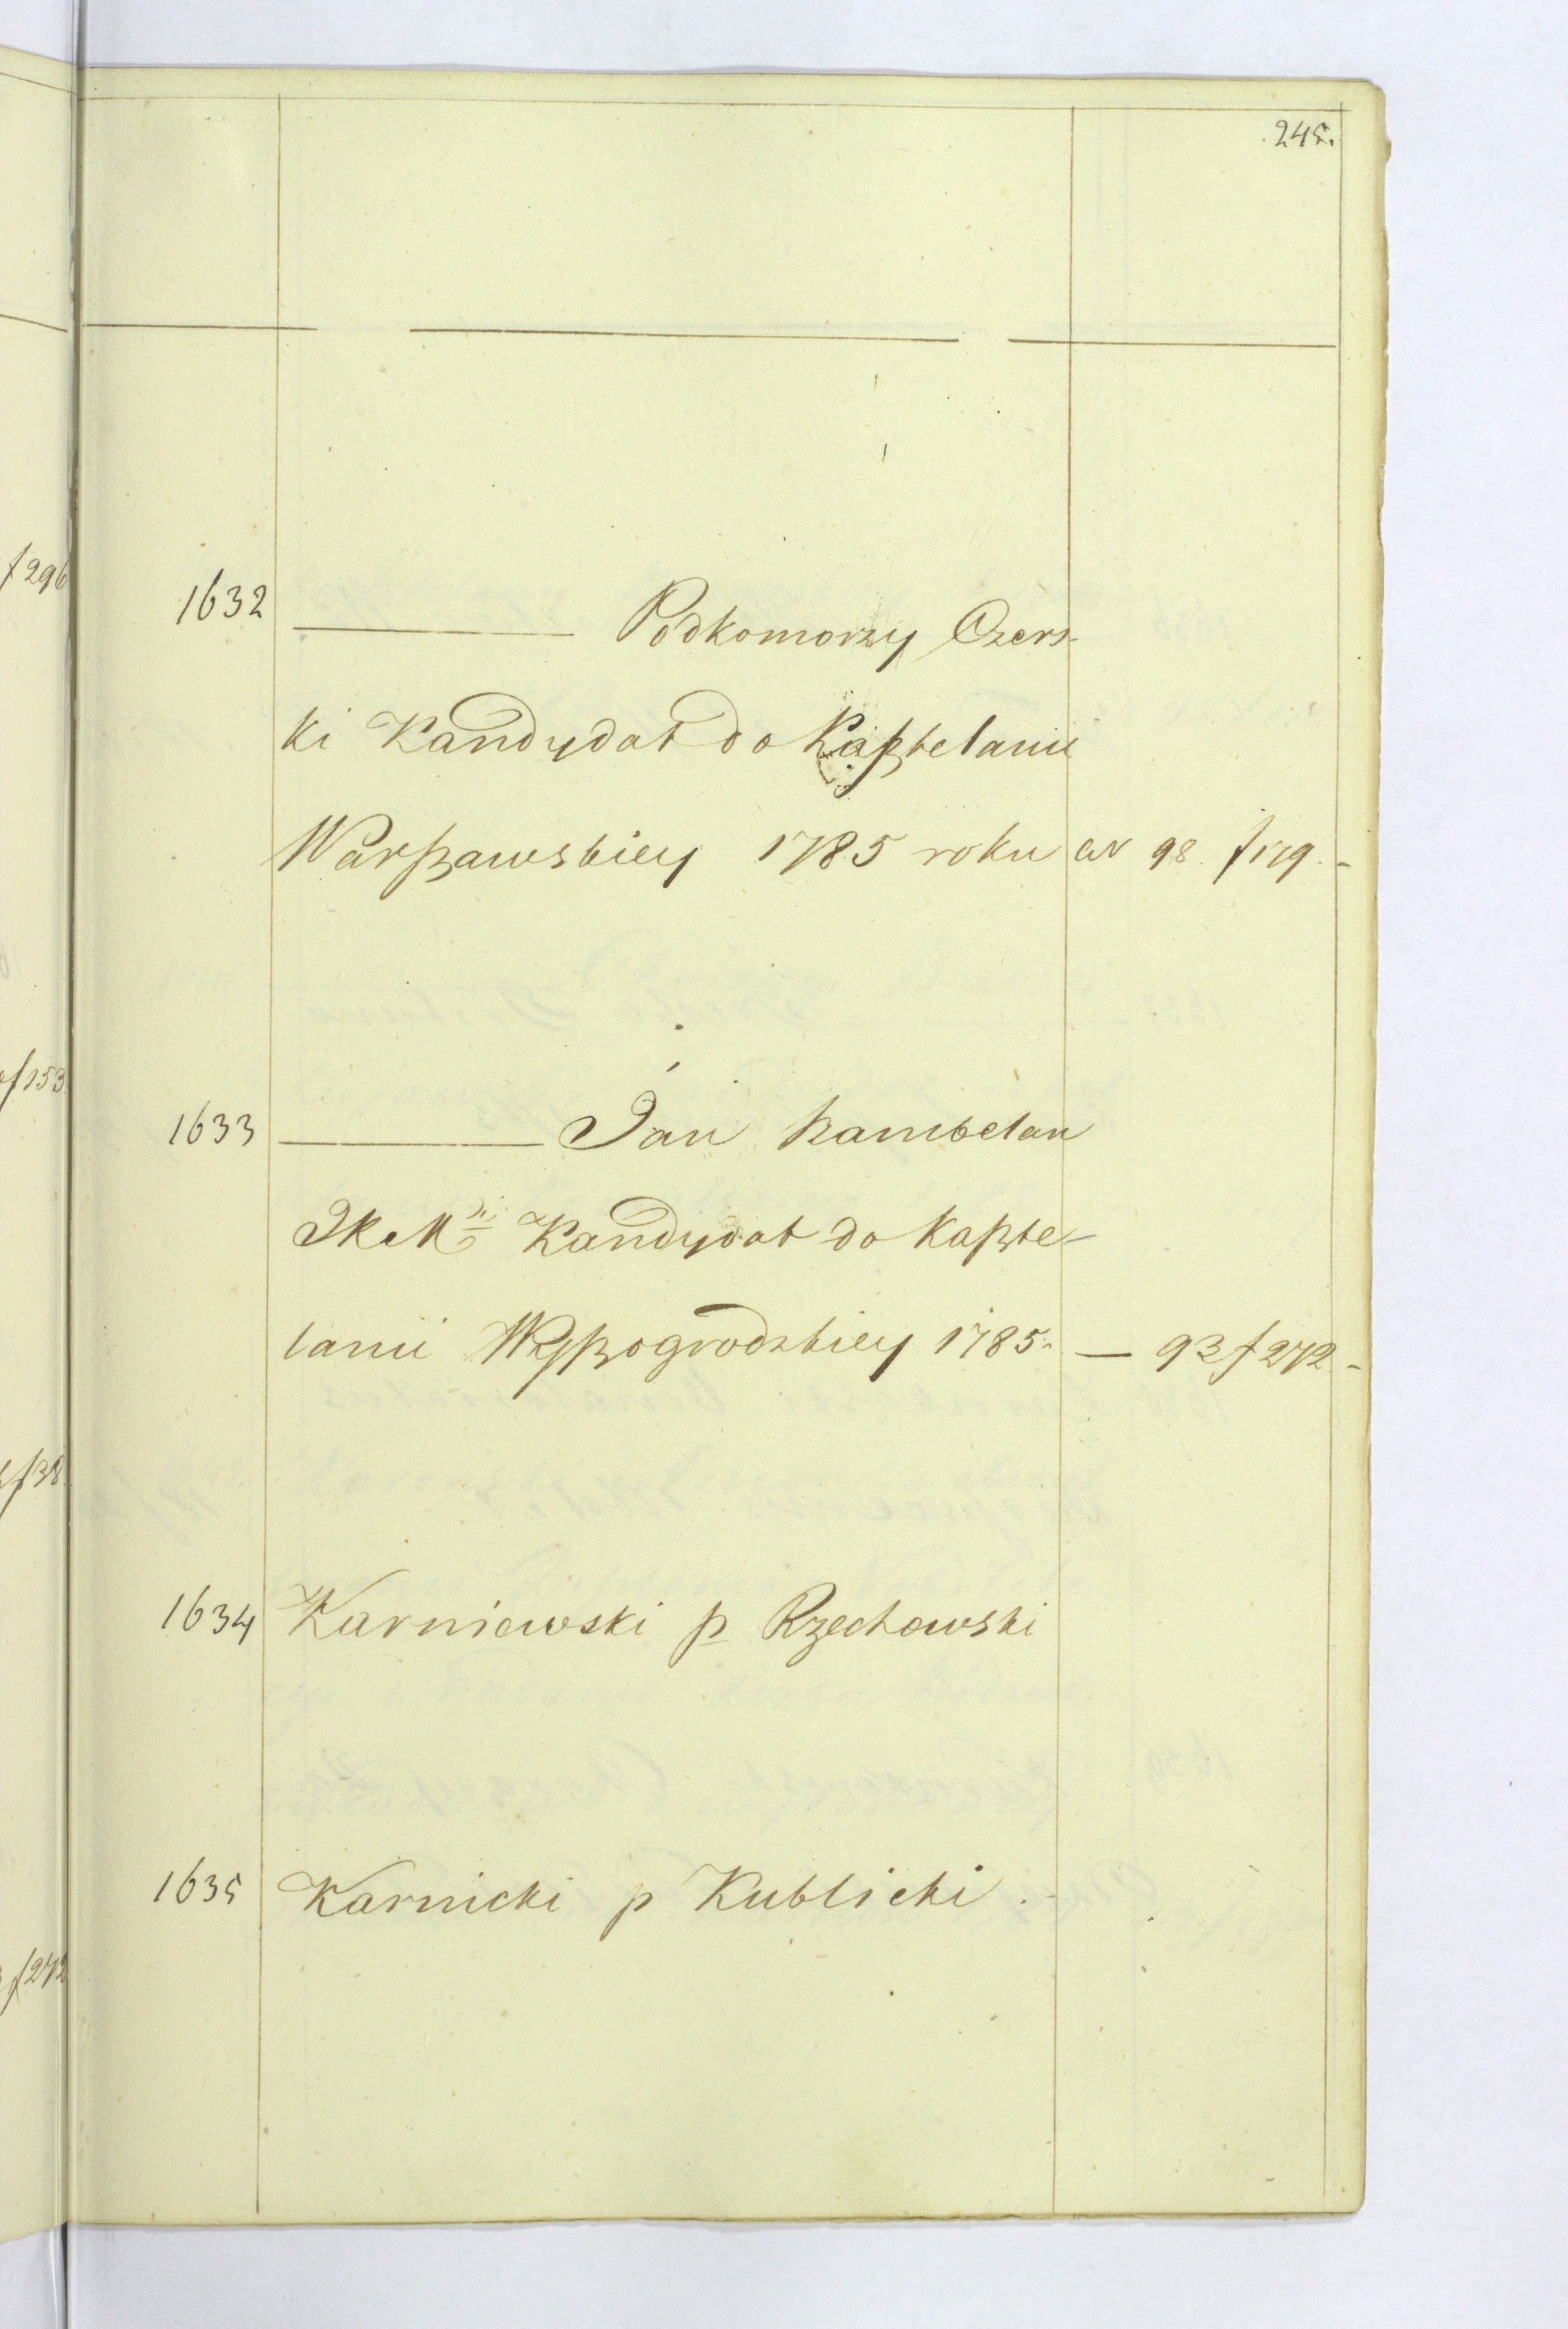 245.
f 296
1632 ——— Podkomorzy Czers-
ki Kandydat do Kasztelanii
Warszawskiey 1785 roku W 98. f 179.-
f 153
1633 ——— Jan Szambelan
JKMci Kandydat do Kaszte-
lanii Wyszogrodzkiey 1785. — 93 f 272 -
f 38
1634 Karniewski p Rzechowski
1635 Karnicki p Kublicki .-
f 272